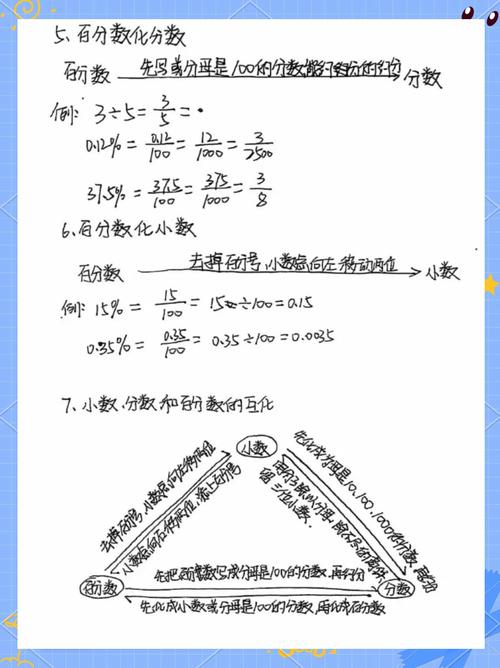 5、百分数化分数
百分数 先写成分母是100的分数能约分的约分 分数
例: 3÷5= 3/5 =
0.12% = 0.12/100 = 12/1000 = 3/2500
37.5% = 37.5/100 = 375/1000 = 3/8
6、百分数化小数
百分数 去掉百分号,小数点向左移动两位 小数
例: 15% = 15/100 = 15÷100=0.15
0.35% = 0.35/100 = 0.35÷100=0.0035
7、小数、分数和百分数的互化
小数
去掉百分号,小数点向左移两位
小数点向右移两位,添上百分号
先化成分母是10、100、1000的分数,再约分
用分子除以分母,除不尽的
留三位小数。
百分数
先把百分数写成分母是100的分数,再约分
先化成小数或分母是100的分数,再化成百分数
分数